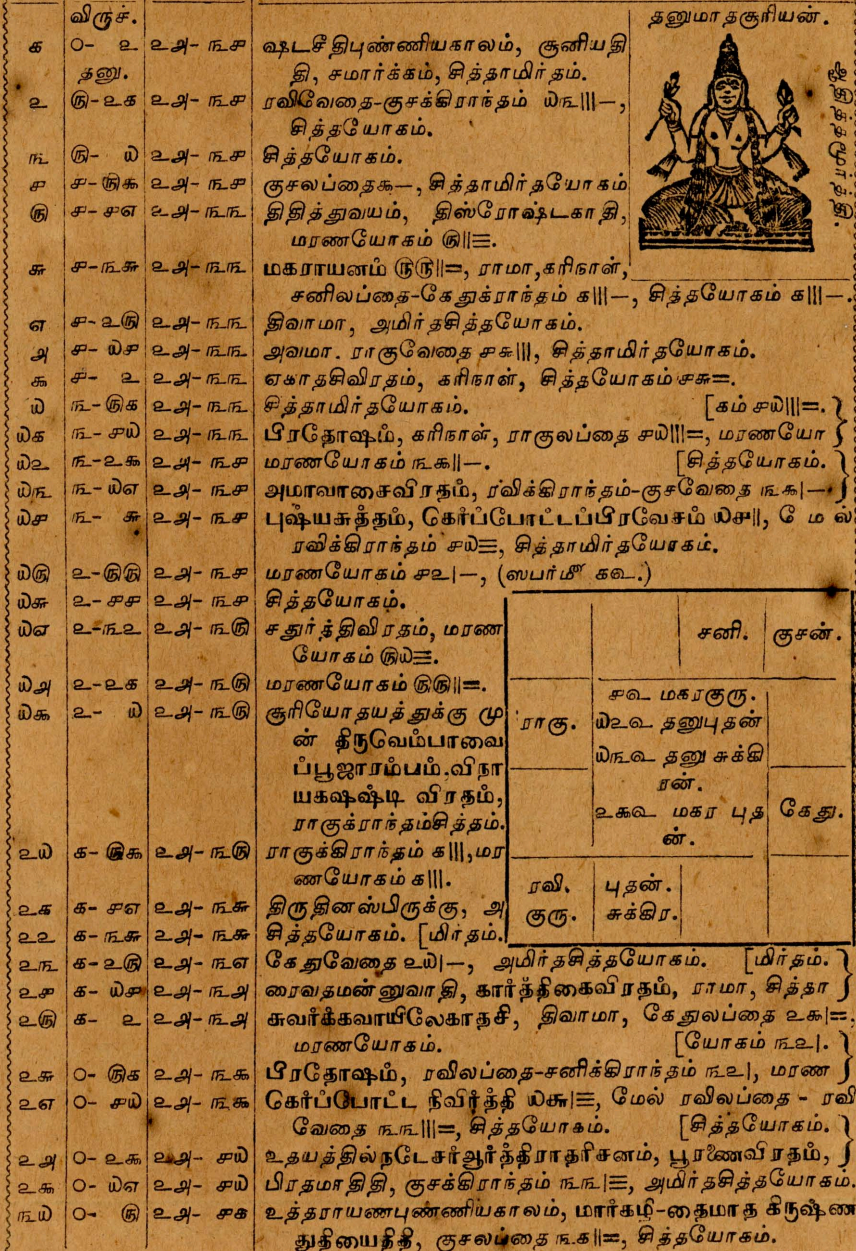 விருச். தனுமாதசூரியன்.
௧ ௦- ௨ ௨௮- ௩௪ ஷடசீதிபுண்ணியகாலம், சூனியதி
தனு. தி, சமார்க்கம், சித்தாமிர்தம்.
௨ ௫-௨௧ ௨௮- ௩௪ ரவிவேதை-குசக்கிராந்தம் ௰௩|||—,
சித்தயோகம்.
௩ ௫- ௰ ௨௮- ௩௪ சித்தயோகம்.
௪ ௪-௫௯ ௨௮- ௩௪ குசலப்தை௯—, சித்தாமிர்தயோகம்
௫ ௪-௪௭ ௨௮- ௩௩ திதித்துவயம், திஸ்ரோஷ்டகாதி,
மரணயோகம் ௫||≡.
௬ ௪-௩௬ ௨௮- ௩௩ மகராயனம் ௫௫||=, ராமா,கரிநாள்,
சனிலப்தை-கேதுக்ராந்தம் ௧|||—, சித்தயோகம் ௧|||—.
௭ ௪-௨௫ ௨௮- ௩௩ திவாமா, அமிர்தசித்தயோகம்.
௮ ௪- ௰௪ ௨௮- ௩௩ அவமா. ராகுவேதை ௪௬|||, சித்தாமிர்தயோகம்.
௯ ௪- ௨ ௨௮- ௩௩ ஏகாதசிவிரதம், கரிநாள், சித்தயோகம்௪௬=.
௰ ௩-௫௧ ௨௮- ௩௩ சித்தாமிர்தயோகம். [கம் ௪௰|||=.
௰௧ ௩- ௪௰ ௨௮- ௩௩ பிரதோஷம், கரிநாள், ராகுலப்தை ௪௰|||=, மரணயோ
௰௨ ௩-௨௯ ௨௮- ௩௪ மரணயோகம் ௩௯||—. [சித்தயோகம்.
௰௩ ௩- ௰௭ ௨௮- ௩௪ அமாவாசைவிரதம், ரவிக்கிராந்தம்-குசவேதை ௩௯|—
௰௪ ௩- ௬ ௨௮- ௩௪ புஷ்யசுத்தம், கேர்ப்போட்டப்பிரவேசம் ௰௪||, மேல்
ரவிக்கிராந்தம் ௪௰≡, சித்தாமிர்தயோகம்.
௰௫ ௨-௫௫ ௨௮- ௩௪ மரணயோகம் ௪௨|—,
௰௬ ௨-௪௪ ௨௮- ௩௪ சித்தயோகம்.
௰௭ ௨-௩௨ ௨௮- ௩௫ சதுர்த்திவிரதம், மரண
யோகம் ௫௰≡.
௰௮ ௨-௨௧ ௨௮- ௩௫ மரணயோகம் ௫௫||=.
௰௯ ௨- ௰ ௨௮- ௩௫ சூரியோதயத்துக்கு மு
ன் திருவெம்பாவை
ப்பூஜாரம்பம்.விநா
யகஷஷ்டி விரதம்,
ராகுக்ராந்தம்சித்தம்.
௨௰ ௧- ௫௯ ௨௮- ௩௫ ராகுக்கிராந்தம் ௧|||,மர
ணயோகம் ௧|||.
௨௧ ௧- ௪௭ ௨௮- ௩௬ திருதினஸ்பிருக்கு, அ
௨௨ ௧-௩௬ ௨௮- ௩௬ சித்தயோகம். [மிர்தம்.
சனி. குசன்.
ராகு.
௪௳ மகரகுரு.
௰௨௳ தனுபுதன்
௰௩௳ தனு சுக்கி
ரன்.
௨௯௳ மகர புத
ன்.
கேது.
ரவி. புதன்.
குரு. சுக்கிர.
௨௩ ௧-௨௫ ௨௮- ௩௭ கேதுவேதை ௨௰|—, அமிர்தசித்தயோகம். [மிர்தம்.
௨௪ ௧- ௰௪ ௨௮- ௩௮ ரைவதமன்னுவாதி, கார்த்திகைவிரதம், ராமா, சித்தா
௨௫ ௧- ௨ ௨௮- ௩௮ சுவர்க்கவாயிலேகாதசி, திவாமா, கேதுலப்தை ௨௯|=.
மரணயோகம். [யோகம் ௩௨|.
௨௬ ௦- ௫௧ ௨௮- ௩௯ பிரதோஷம், ரவிலப்தை-சனிக்கிராந்தம் ௩௨|, மரண
௨௭ ௦- ௪௰ ௨௮- ௩௯ கேர்ப்போட்ட நிவிர்த்தி ௰௬|≡, மேல் ரவிலப்தை - ரவி
வேதை ௩௩|||=, சித்தயோகம். [சித்தயோகம்.
௨௮ ௦- ௨௯ ௨௮- ௪௰ உதயத்தில்நடேசர்ஆர்த்திராதரிசனம், பூரணைவிரதம்,
௨௯ ௦- ௰௭ ௨௮- ௪௰ பிரதமாதிதி, குசக்கிராந்தம் ௩௩|≡, அமிர்தசித்தயோகம்.
௩௰ ௦- ௫ ௨௮- ௪௧ உத்தராயணபுண்ணியகாலம், மார்கழி-தைமாத கிருஷ்ண
துதியைதிதி, குசலப்தை ௩௧||=, சித்தயோகம்.